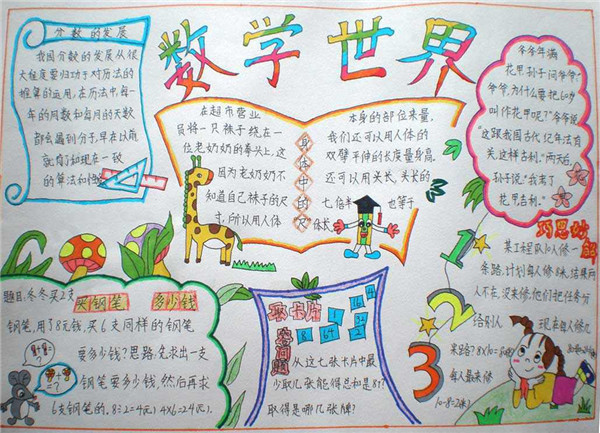 数学世界
分数的发展
我国分数的发展从很
大程度要归功于对历法的
推算的运用,在历法中,每一
年的周数和每月的天数
都会遇到分子,早在以前
就有了和现在一致
的算法
身体中的尺
在超市营业
员将一只袜子绕在一
位老奶奶的拳头上,这
因为老奶奶不
知道自己袜子的尺
寸,所以用人体
本身的部位来量,
我们还可以用人体的
双臂平伸的长度量身高,
还可以用头长,头长的
七倍半也等于
体长
爷爷年满
花甲,孙子问爷爷:“
爷爷,为什么要把60岁
叫作花甲呢?”爷爷说:
“这跟我国古代纪年法有
关,这样吉利。”两天后,
孙子说:“我考了
花甲吉利。”
题目:冬冬买2支
买钢笔 多少钱
钢笔,用了8元钱,买6支同样的钢笔
要多少钱?思路:先求出一支
钢笔要多少钱,然后再求
6支钢笔的。8÷2=4(元) 4×6=24(元).
取卡片
8 64 32
从这七张卡片中最
少取几张能得总和是81?
取得是哪几张牌?
巧思妙解
某工程队10人修一
条路,计划每人修8米,结果两
人不在,没来修,他们把任务分
给别人 现在每人修几
米路? 8×10=80(米)
每人最来修
10-8=2(米)
1
2
3